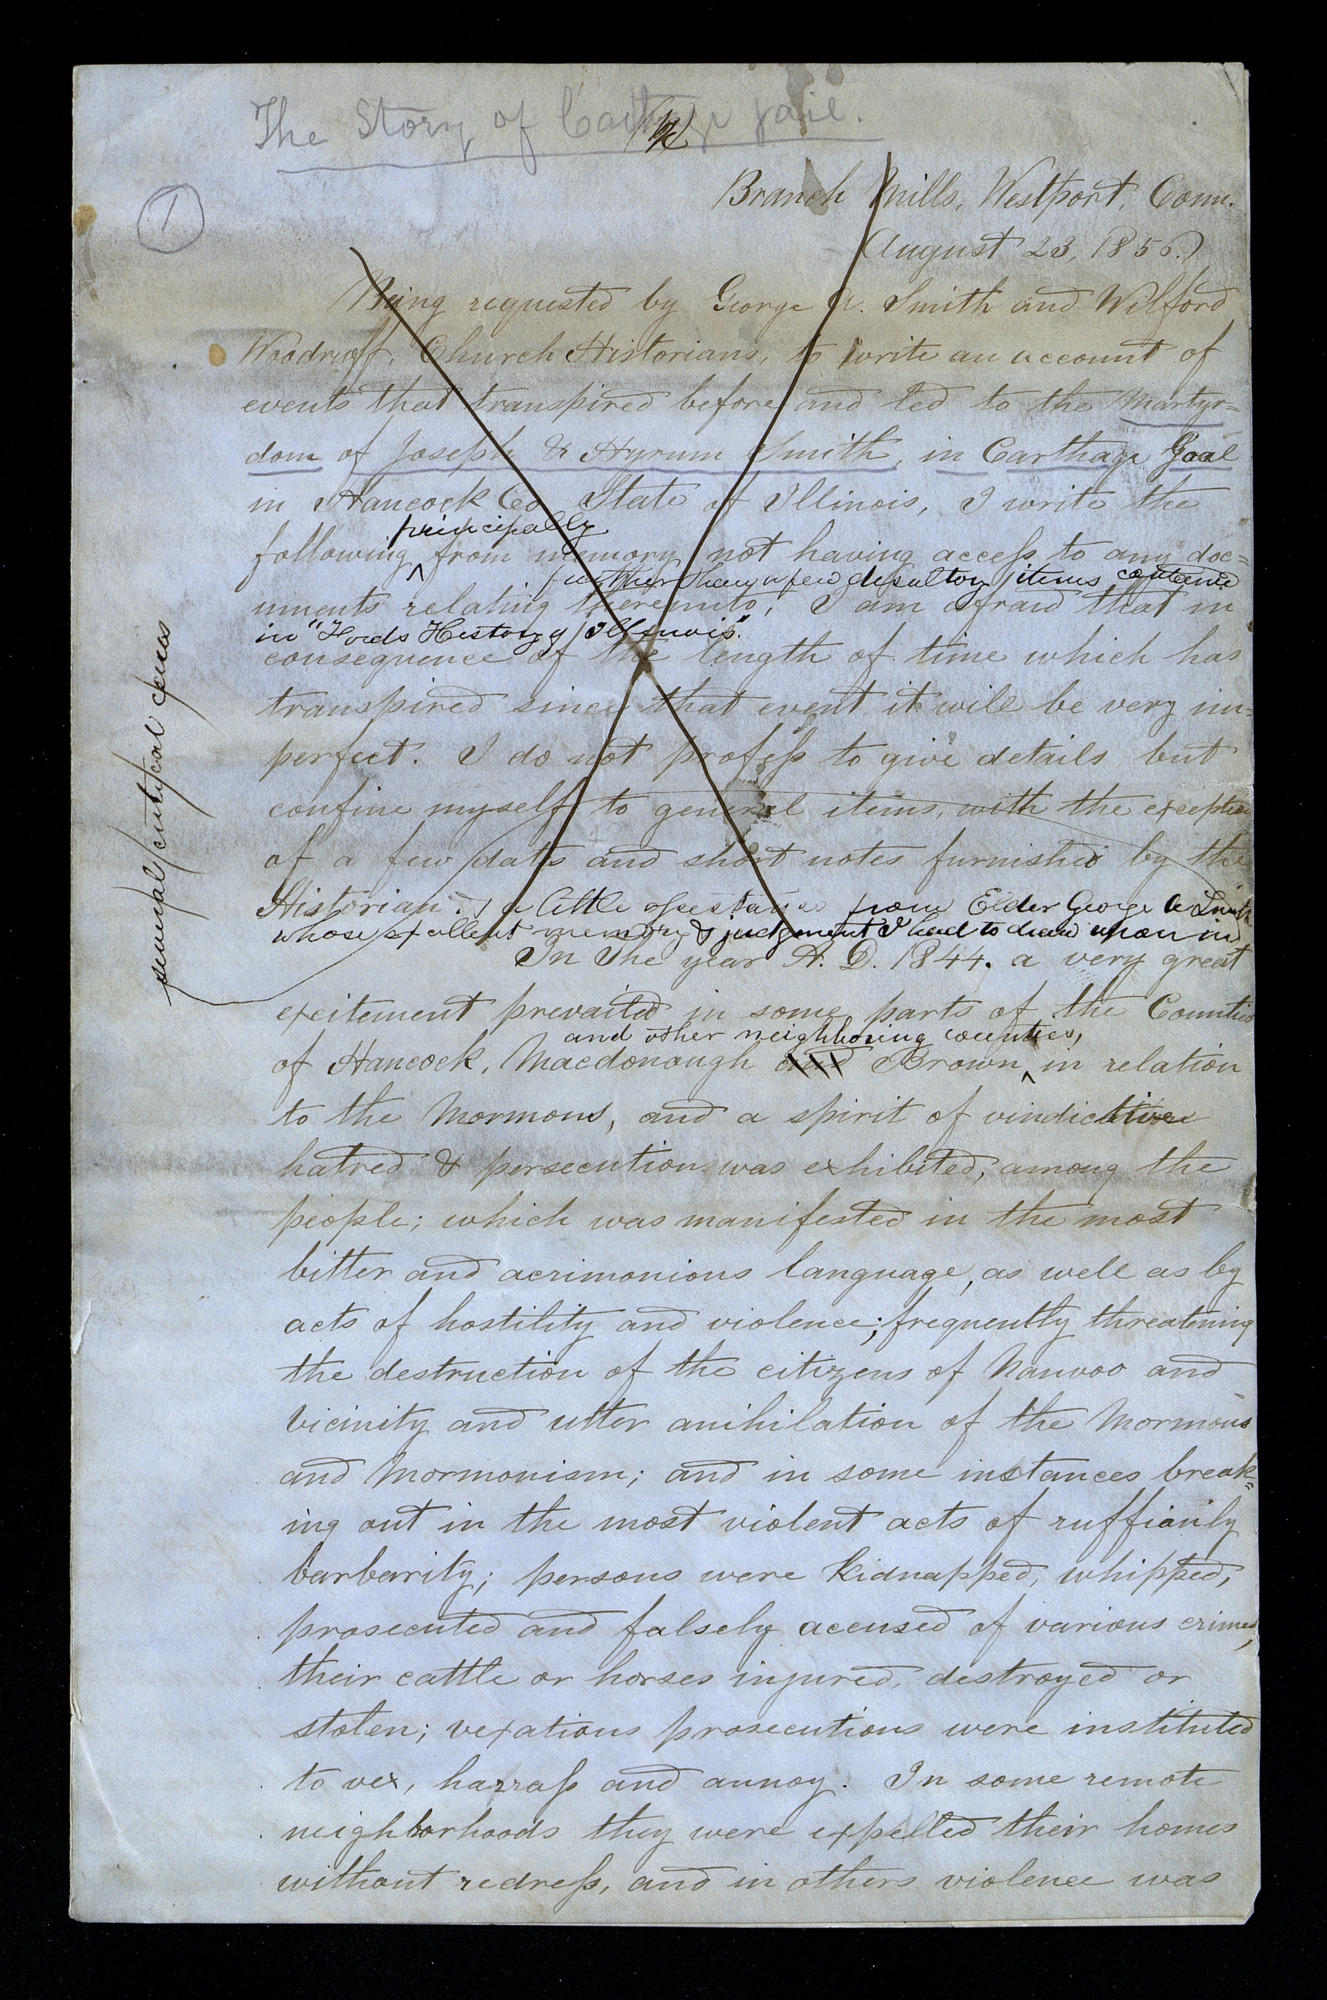 The Story of Carthage Jail.
1
Branch Mills, Westport, Conn.
August 23, 1856.)
Being requested by George A. Smith and Wilford
Woodruff, Church Historians, to write an account of
events that transpired before and led to the Martyr=
dom of Joseph & Hyrum Smith, in Carthage Goal
in Hancock Co State of Illinois, I write the
principally
following ^ from memory, not having access to any doc=
further than a few desultory items
uments relating thereunto; I am afraid that in
in "Fords History of Illinois".
consequence of the length of time which has
transpired since that event it will be very im=
perfect. I do not profess to give details, but
confine myself to general items, with the exception
of a few dats and short notes furnished by the
Historian. & a little from Elder George A Smith
whose excellent memory & judgement I had to draw upon in
several critical cases
In The year A. D. 1844. a very great
excitement prevailed in some parts of the Counties
and other neighboring counties,
of Hancock, Macdonaugh and Brown ^ in relation
to the Mormons, and a spirit of vindictive
hatred & persecution was exhibited, among the
people; which was manifested in the most
bitter and acrimonious language, as well as by
acts of hostility and violence; frequently threatening
the destruction of the citizens of Nauvoo and
vicinity and utter anihilation of the Mormons
and Mormonism; and in some instances break=
ing out in the most violent acts of ruffianly
barbarity; persons were kidnapped, whipped,
prosecuted and falsely accused of various crimes,
their cattle or horses injured, destroyed or
stolen; vexatious prosecutions were instituted
to vex, harrass and annoy. In some remote
neighborhoods they were expelled their homes
without redress, and in others violence was